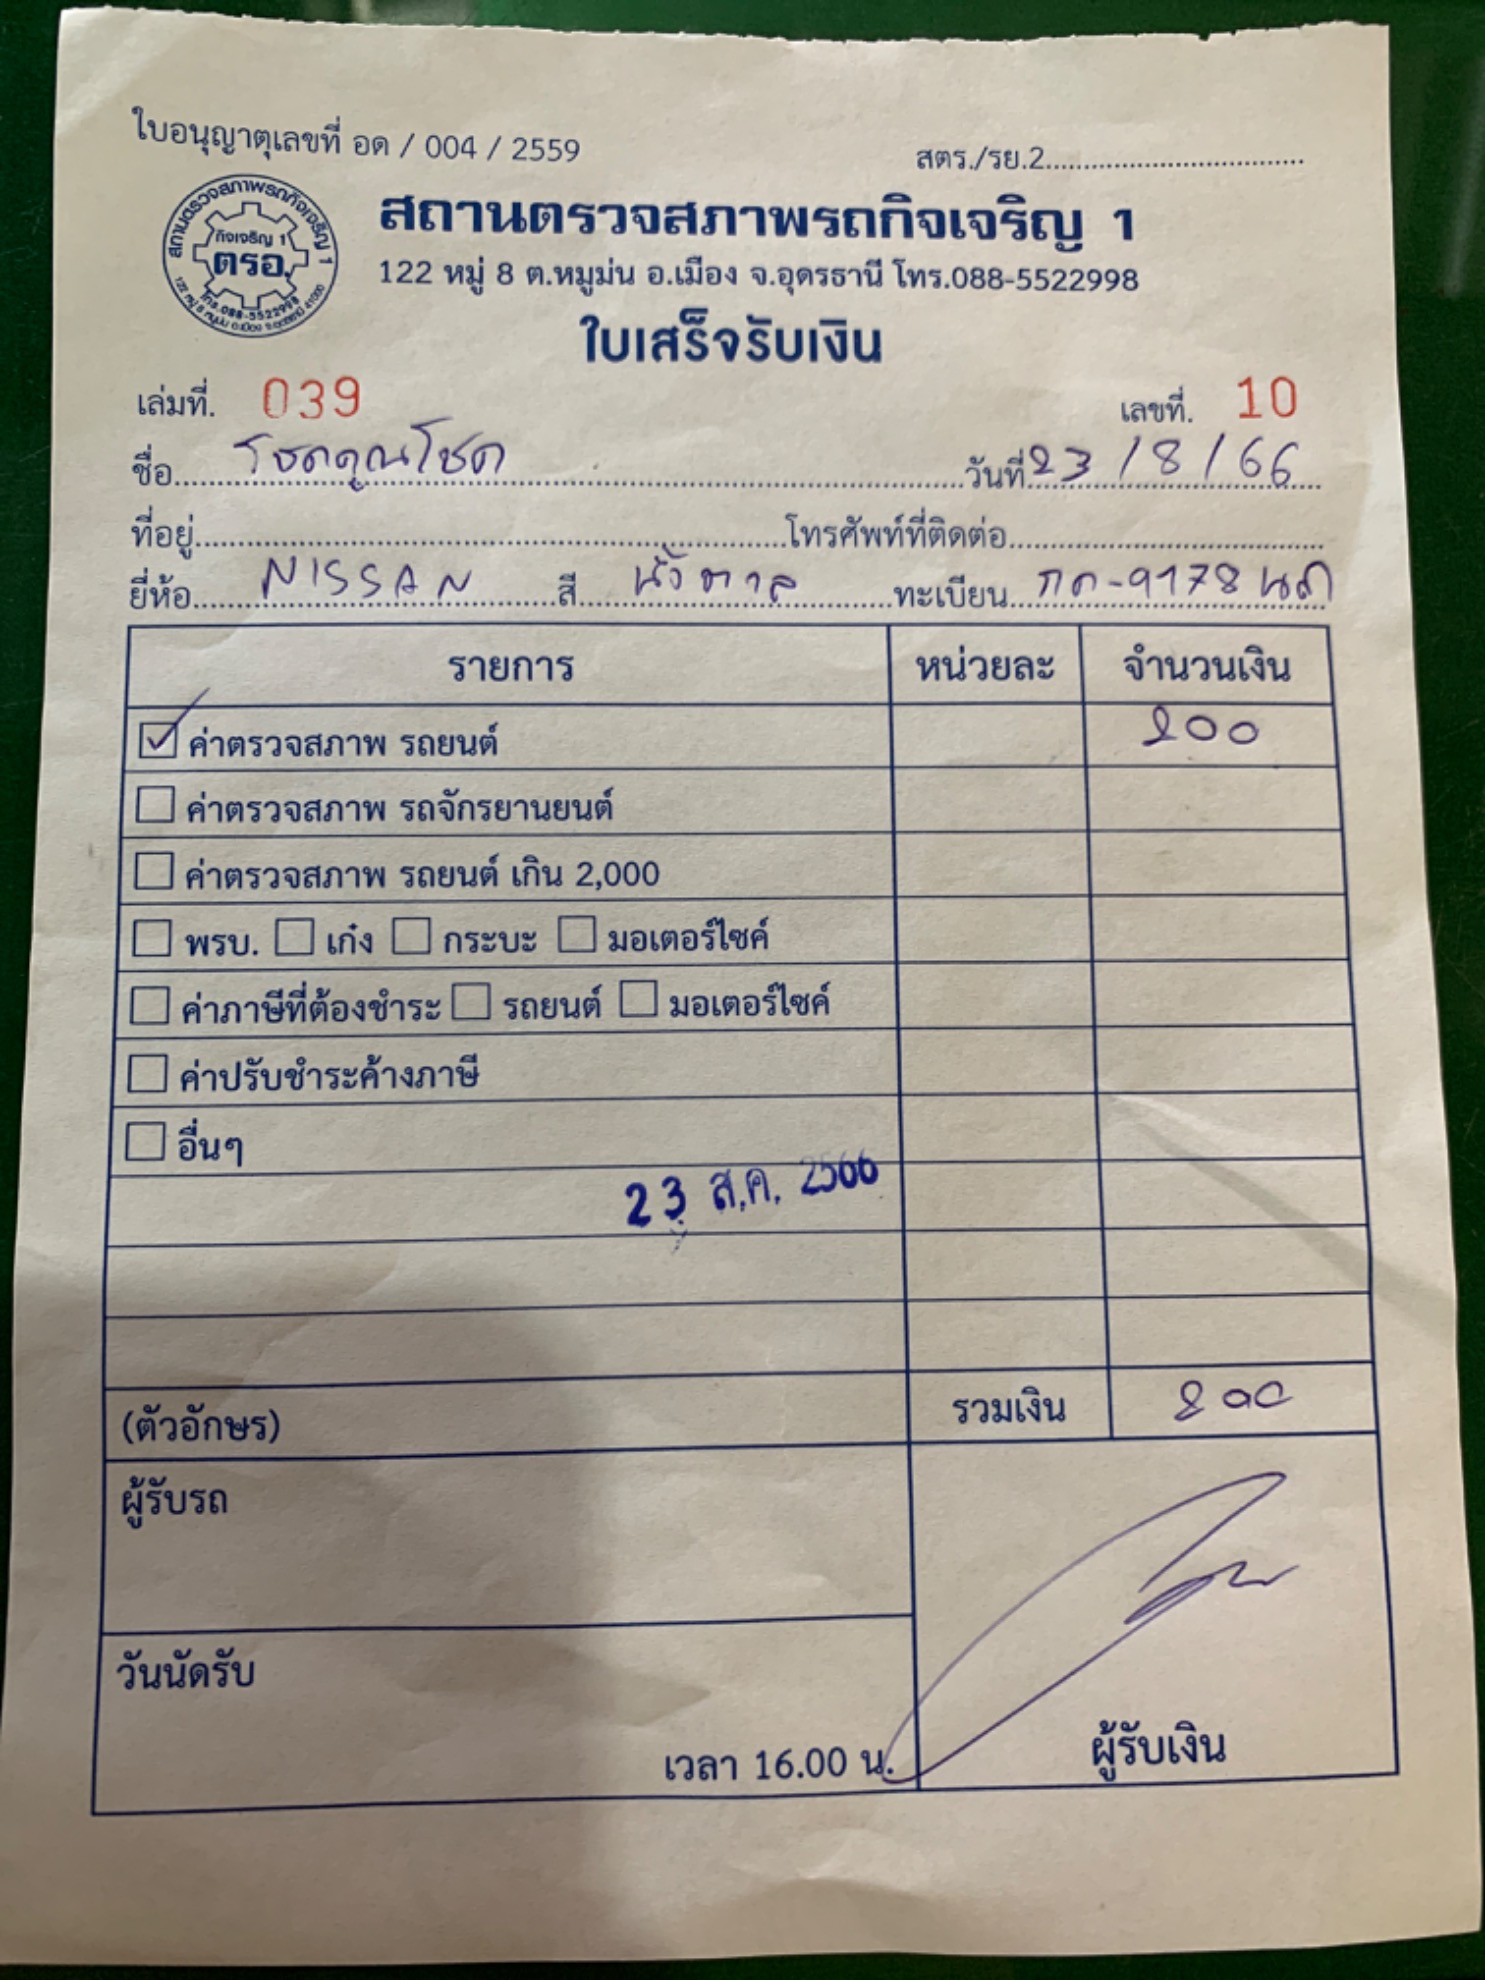 ใบอนุญาตุเลขที่ อด / 004 / 2559 สตร./รย.2
สถานตรวจสภาพรถกิจเจริญ 1
กิจเจริญ 1
ตรอ.
122 หมู่ 8 ต.หมูม่น อ.เมือง จ.อุดรธานี โทร.088-5522998
ใบเสร็จรับเงิน
เล่มที่. 039 เลขที่. 10
ชื่อ โชคคูณโชค วันที่ 23/8/66
ที่อยู่ โทรศัพท์ที่ติดต่อ
ยี่ห้อ NISSAN สี ทะเบียน กต-9178
รายการ หน่วยละ จำนวนเงิน
ค่าตรวจสภาพ รถยนต์ 200
ค่าตรวจสภาพ รถจักรยานยนต์
ค่าตรวจสภาพ รถยนต์ เกิน 2,000
พรบ. เก๋ง กระบะ มอเตอร์ไซค์
ค่าภาษีที่ต้องชำระ รถยนต์ มอเตอร์ไซค์
ค่าปรับชำระค้างภาษี
อื่นๆ
23 ส.ค. 2566
(ตัวอักษร) รวมเงิน 200
ผู้รับรถ
วันนัดรับ
เวลา 16.00 น. ผู้รับเงิน